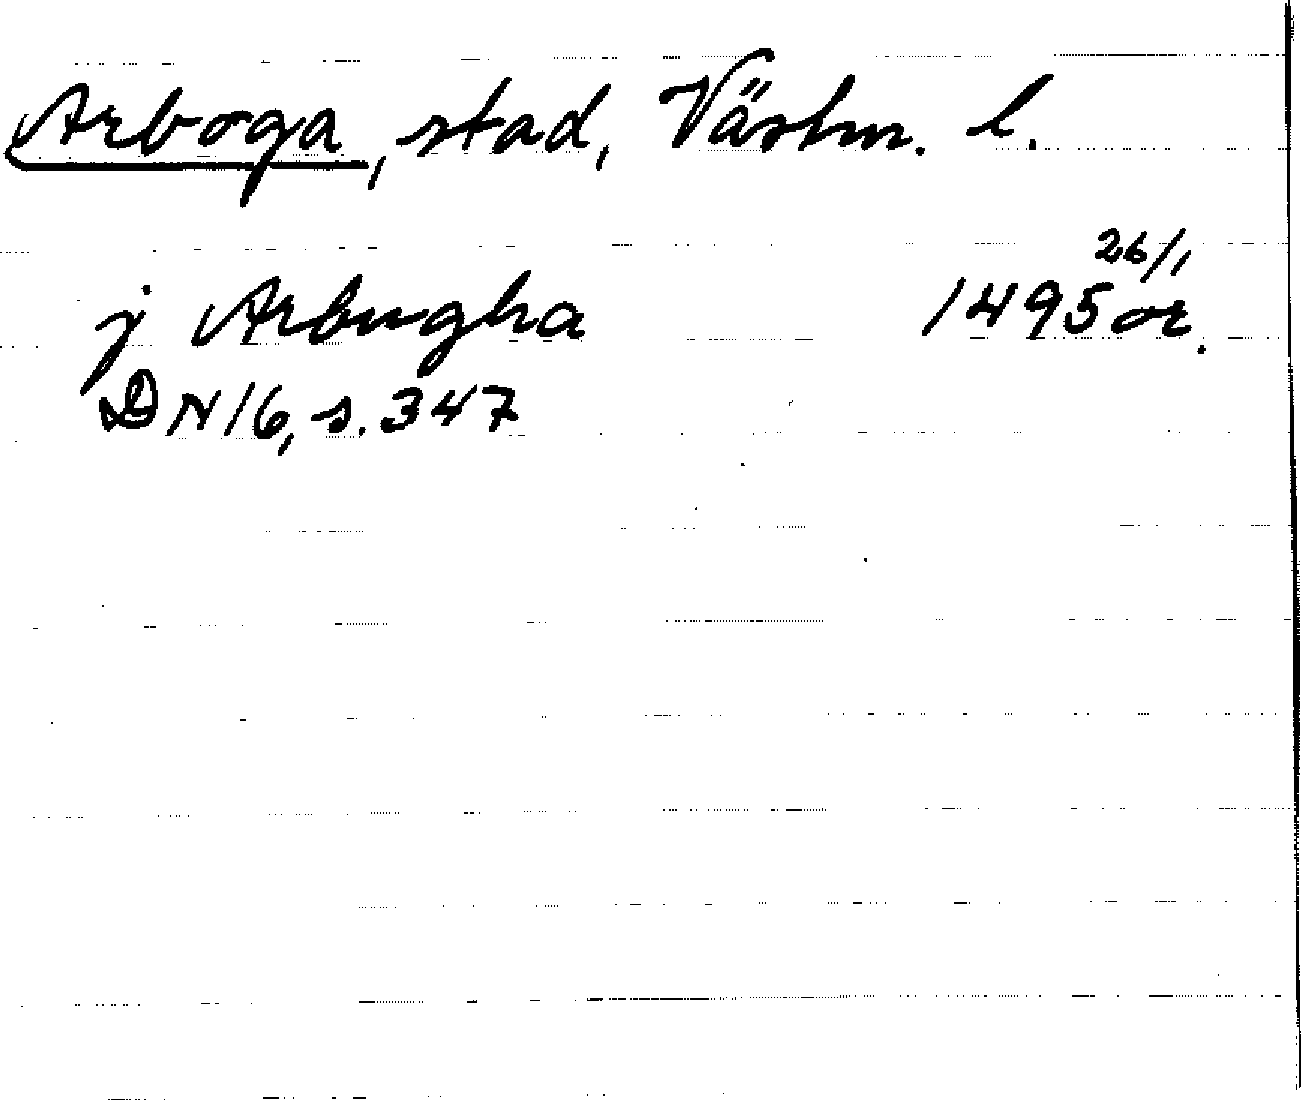 Arboga, stad, Västm. l.
j Arbugha 1495 26/1 or.
DN 16, s. 347